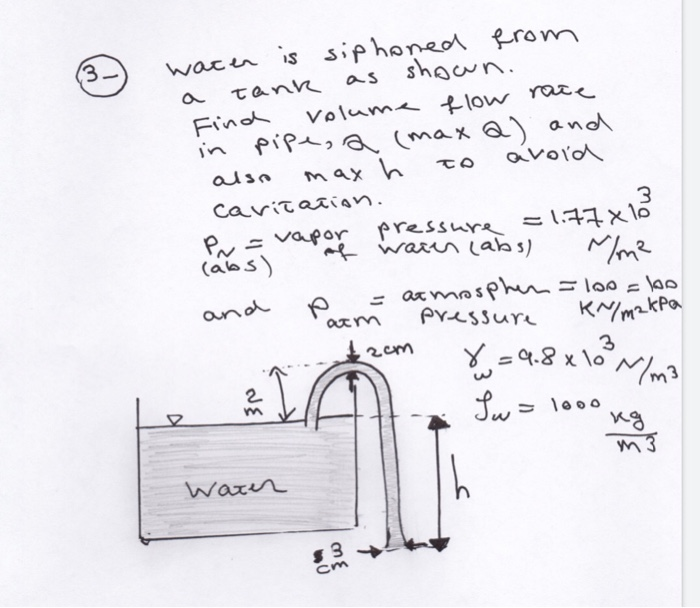 3-
Water is siphoned from
a tank as shown.
Find volume flow rate
in pipe, Q (max Q) and
also max h to avoid
cavitation.
Pv = vapor pressure = 1.77 x 10^3
(abs) of water (abs) N/m2
and Patm = atmospher = 100 = 100
pressure KN/m2 kPa
2cm
γw = 9.8 x 10^3 N/m3
2
m
ρw = 1000 kg
m3
Water
h
3
cm